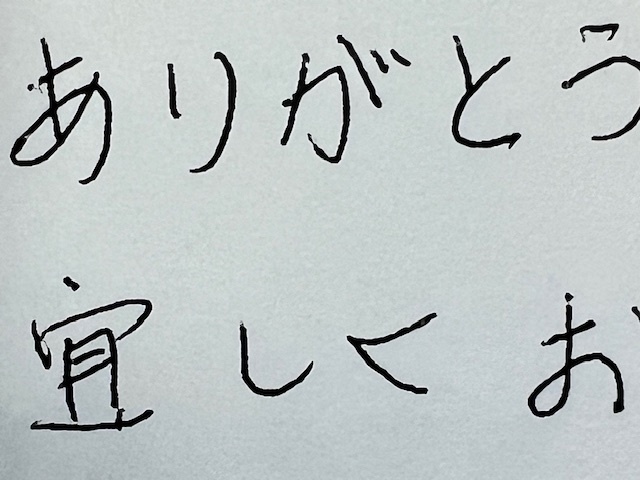 ありがとう
宜しくお